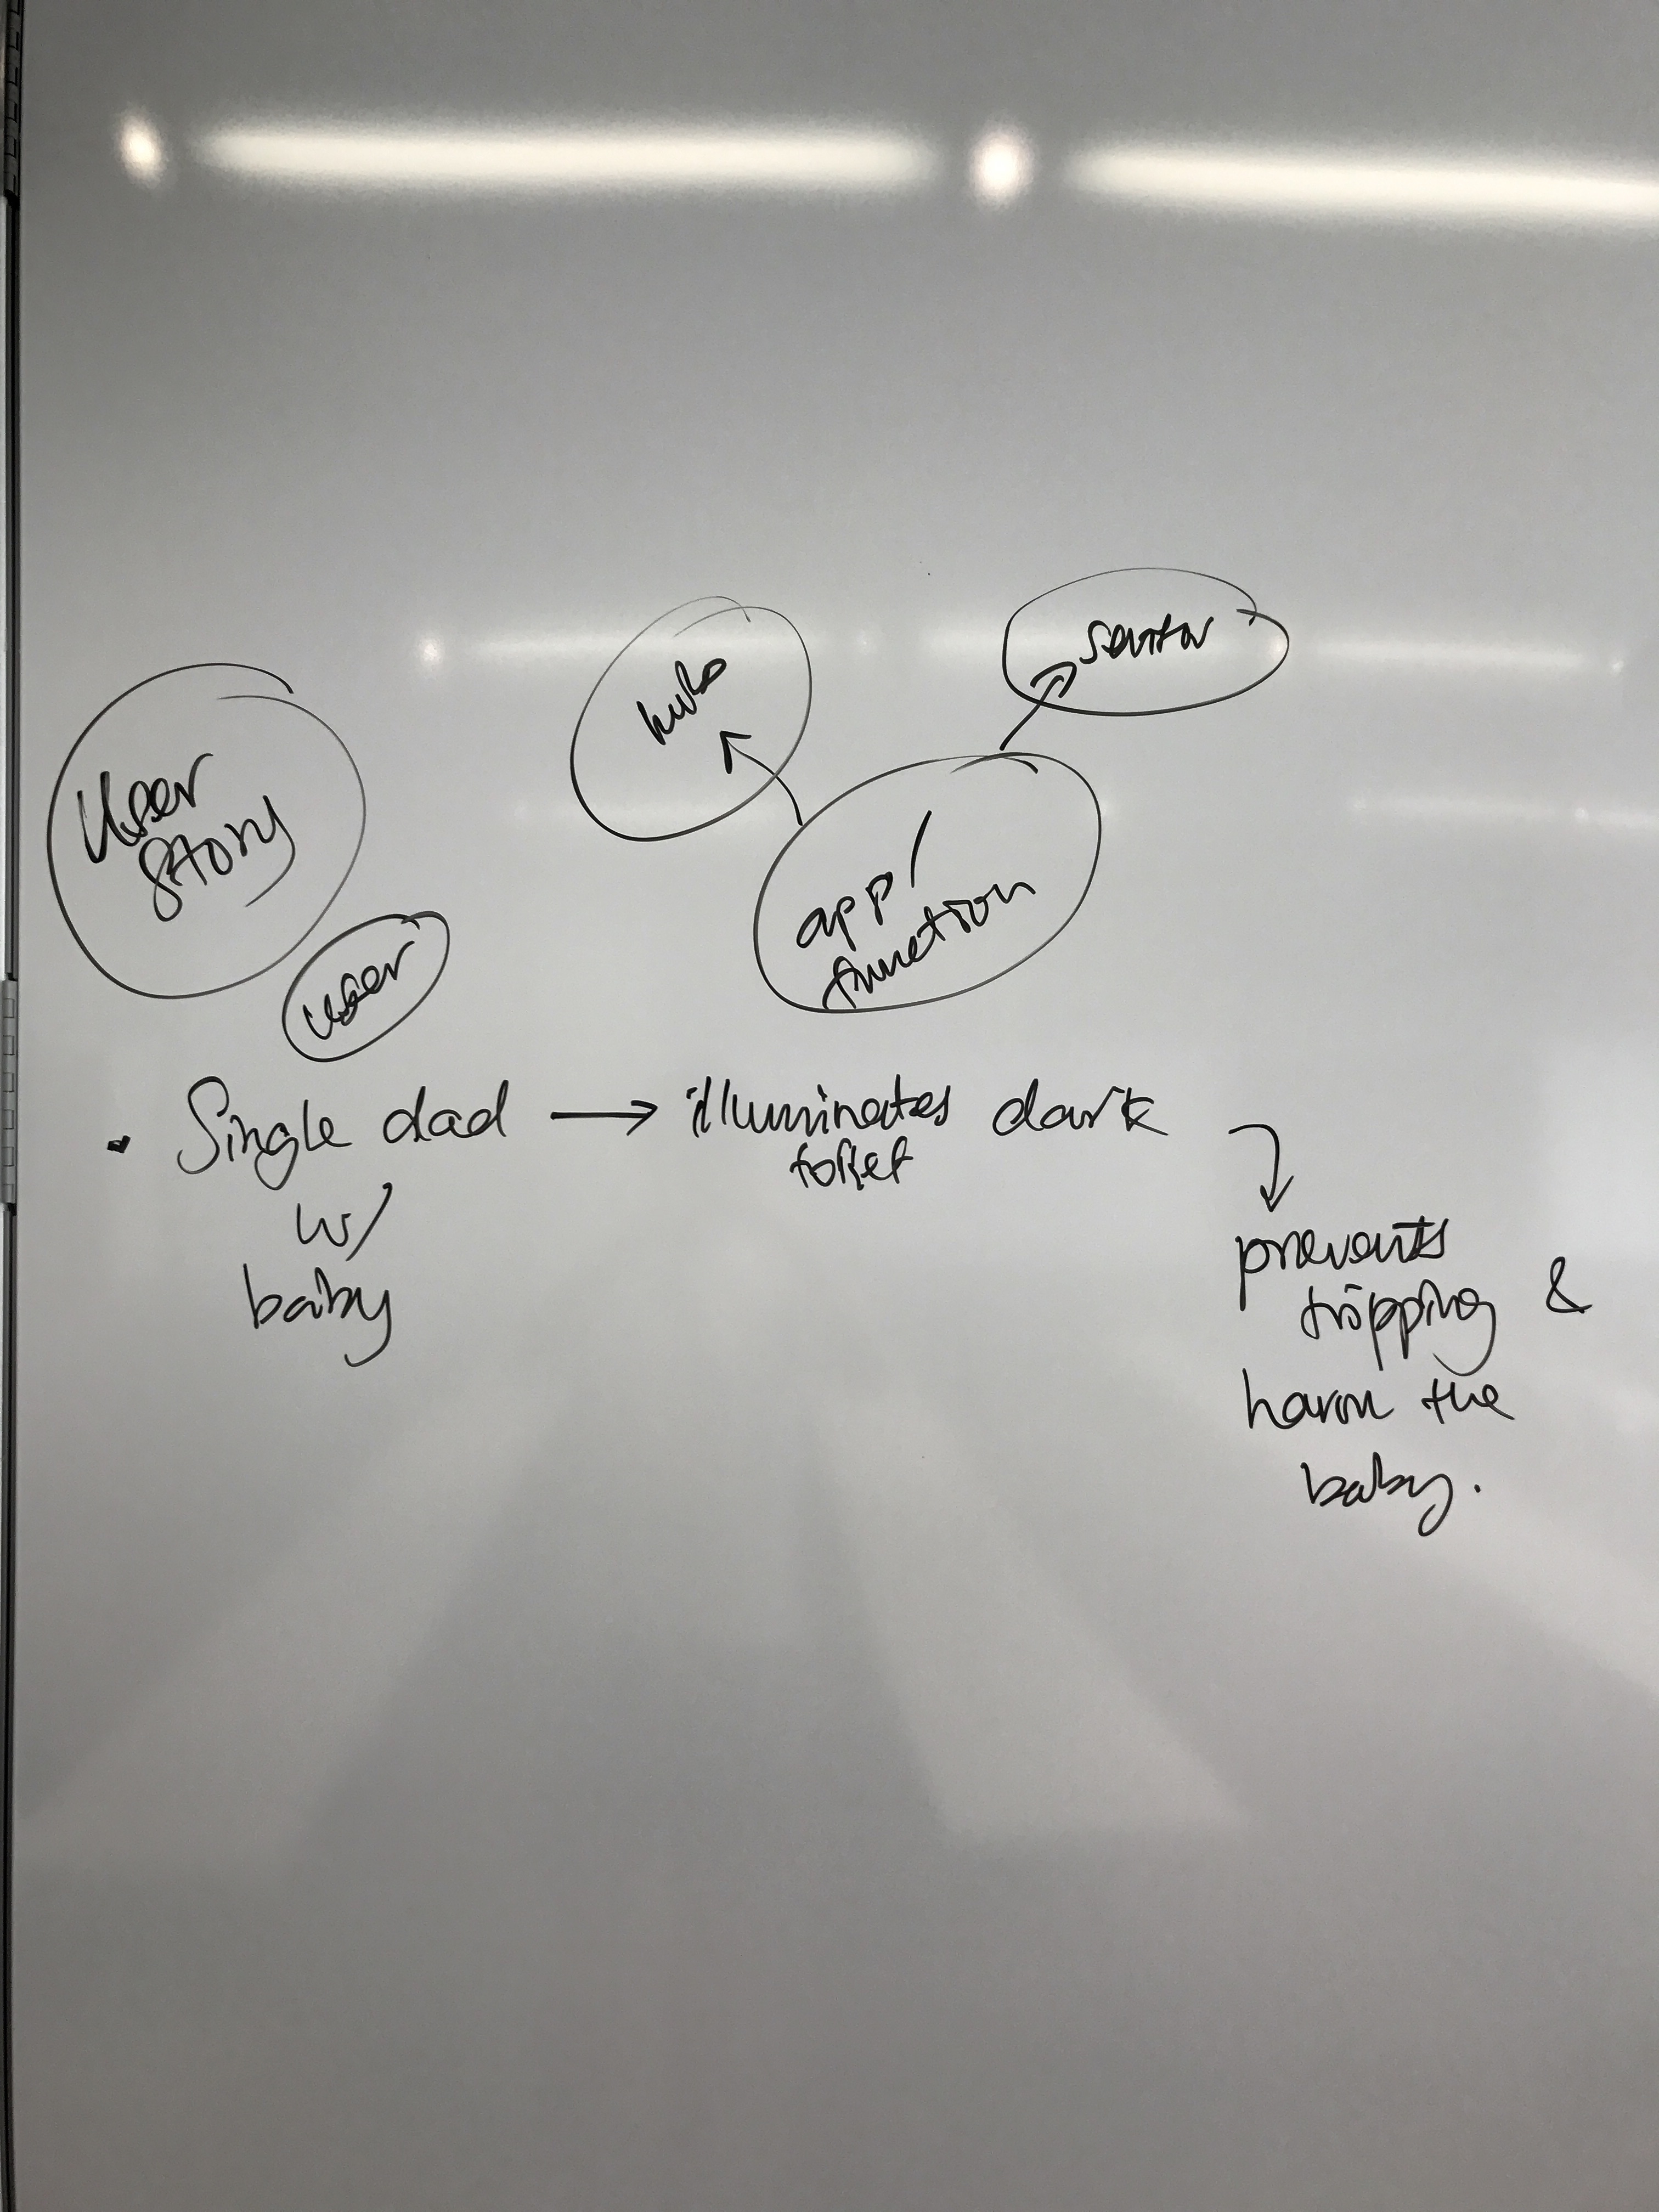 User
story
user
hub
sensor
app/
function
Single dad → illuminates dark
toilet
w/
baby
prevents
tripping &
harm the
baby.